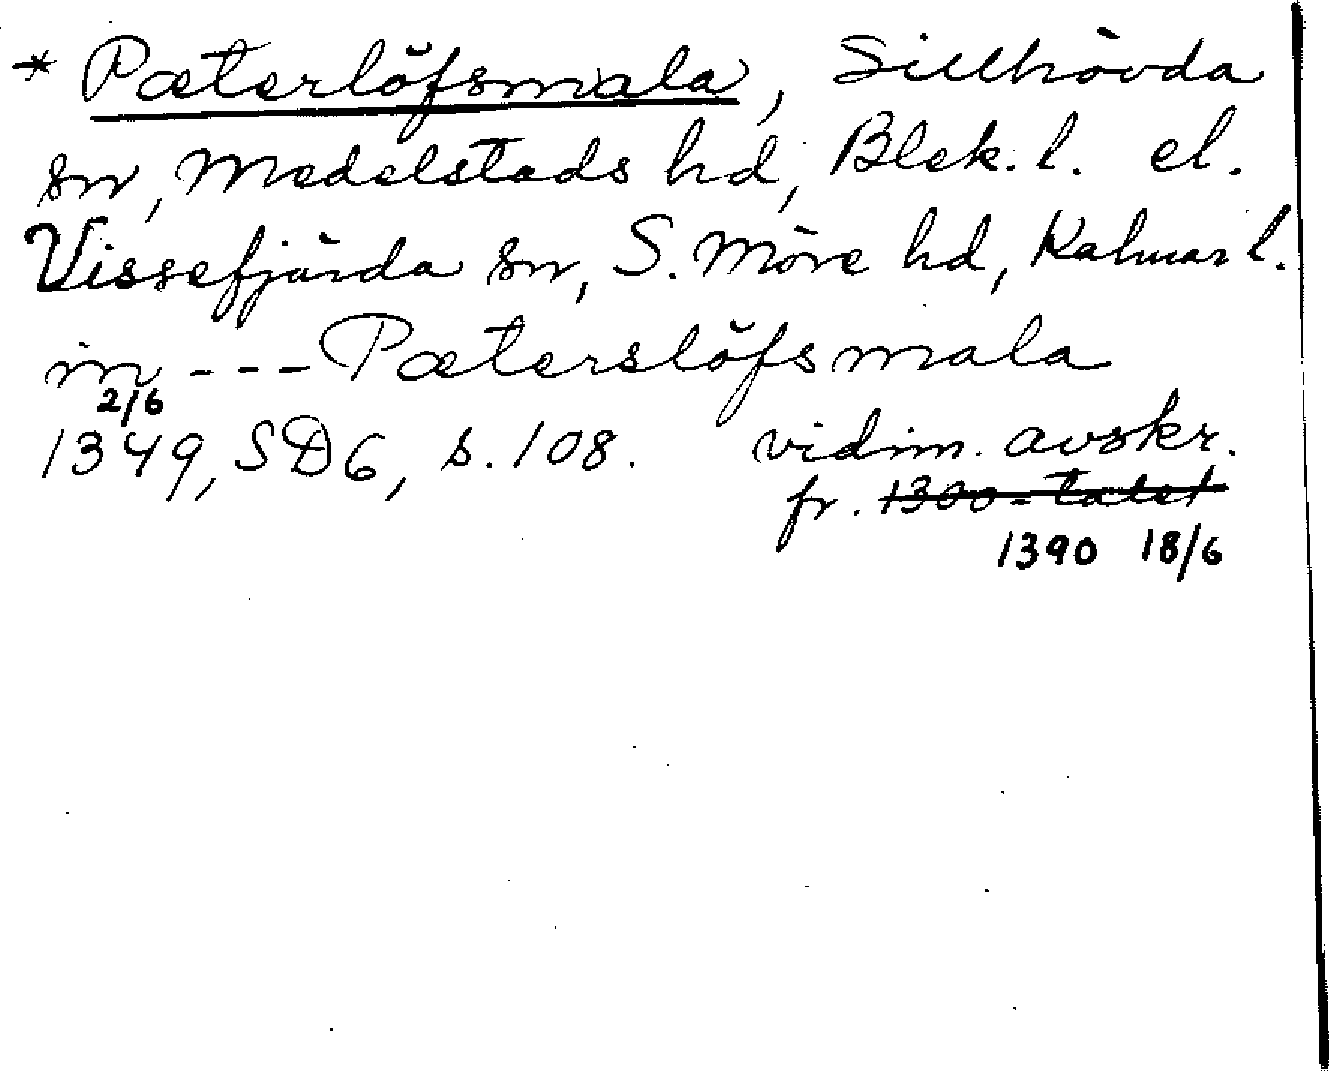 * Pæterlöfsmala, Sillhövda
sn, Medelstads hd, Blek. l. el.
Vissefjärda sn, S. Möre hd, Kalmar l.
in --- Pæterslöfsmala
2/6
1349, SD 6, s. 108. vidim. avskr.
fr. 1300-talet
1390 18/6